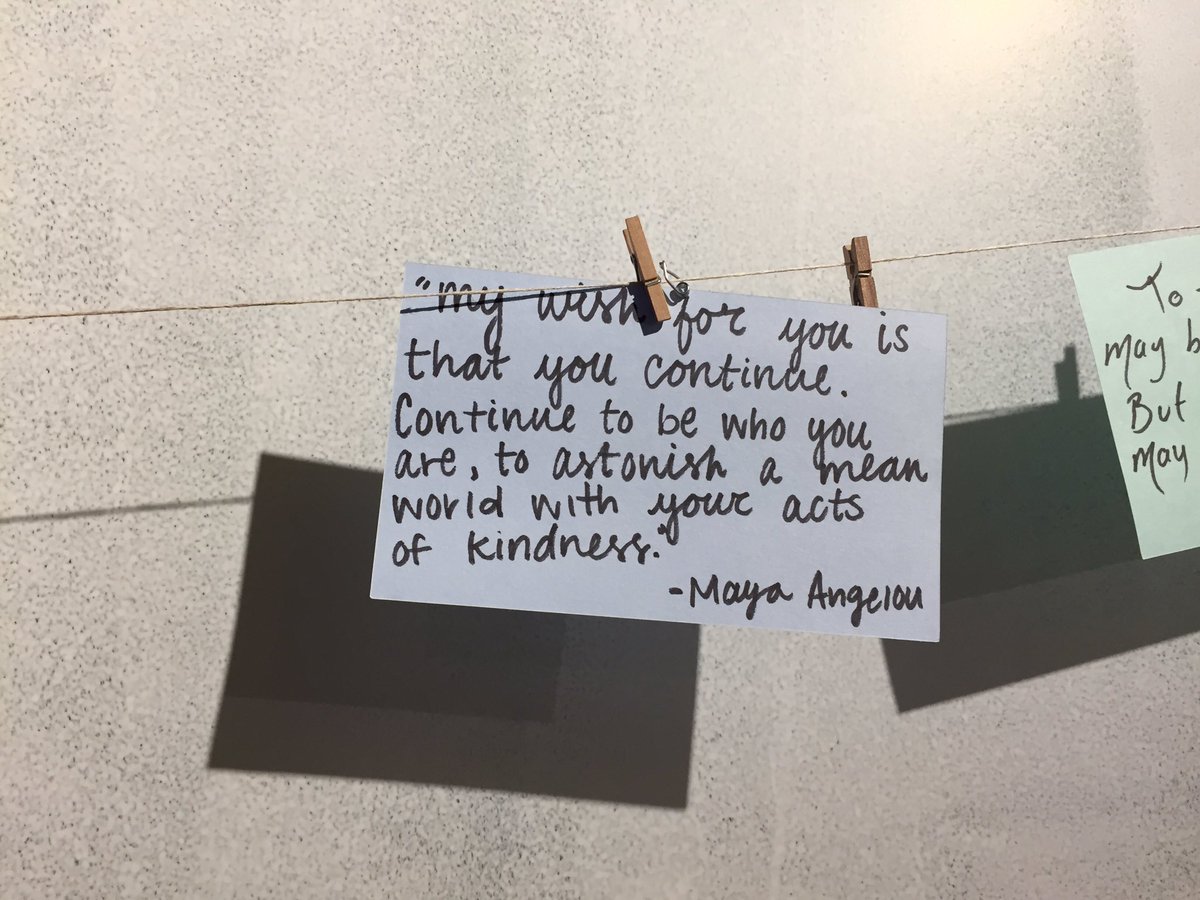 "my wish for you is
that you continue.
Continue to be who you
are, to astonish a mean
world with your acts
of kindness."
-Maya Angelou
To
may b
But
may